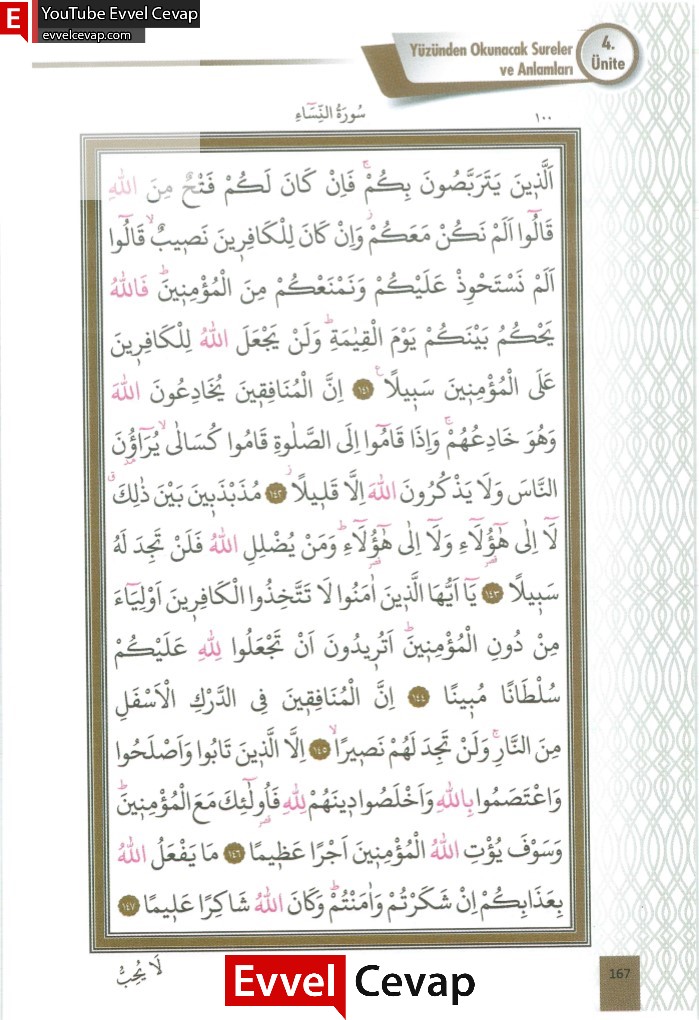 YouTube Evvel Cevap
evvelcevap.com
Yüzünden Okunacak Sureler
ve Anlamları
4.
Ünite
١٠٠ سُورَةُ النِّسَٓاءِ
اَلَّذ۪ينَ يَتَرَبَّصُونَ بِكُمْۚ فَاِنْ كَانَ لَكُمْ فَتْحٌ مِنَ اللّٰهِ
قَالُٓوا اَلَمْ نَكُنْ مَعَكُمْۘ وَاِنْ كَانَ لِلْكَافِر۪ينَ نَص۪يبٌۙ قَالُٓوا
اَلَمْ نَسْتَحْوِذْ عَلَيْكُمْ وَنَمْنَعْكُمْ مِنَ الْمُؤْمِن۪ينَۜ فَاللّٰهُ
يَحْكُمُ بَيْنَكُمْ يَوْمَ الْقِيٰمَةِۜ وَلَنْ يَجْعَلَ اللّٰهُ لِلْكَافِر۪ينَ
عَلَى الْمُؤْمِن۪ينَ سَب۪يلًا۟ ﴿١٤١﴾ اِنَّ الْمُنَافِق۪ينَ يُخَادِعُونَ اللّٰهَ
وَهُوَ خَادِعُهُمْۚ وَاِذَا قَامُٓوا اِلَى الصَّلٰوةِ قَامُوا كُسَالٰىۙ يُرَٓاؤُ۫نَ
النَّاسَ وَلَا يَذْكُرُونَ اللّٰهَ اِلَّا قَل۪يلًاۘ ﴿١٤٢﴾ مُذَبْذَب۪ينَ بَيْنَ ذٰلِكَۗ
لَٓا اِلٰى هٰٓؤُ۬لَٓاءِ وَلَٓا اِلٰى هٰٓؤُ۬لَٓاءِۜ وَمَنْ يُضْلِلِ اللّٰهُ فَلَنْ تَجِدَ لَهُ
سَب۪يلًا ﴿١٤٣﴾ يَٓا اَيُّهَا الَّذ۪ينَ اٰمَنُوا لَا تَتَّخِذُوا الْكَافِر۪ينَ اَوْلِيَٓاءَ
مِنْ دُونِ الْمُؤْمِن۪ينَۜ اَتُر۪يدُونَ اَنْ تَجْعَلُوا لِلّٰهِ عَلَيْكُمْ
سُلْطَانًا مُب۪ينًا ﴿١٤٤﴾ اِنَّ الْمُنَافِق۪ينَ فِي الدَّرْكِ الْاَسْفَلِ
مِنَ النَّارِۚ وَلَنْ تَجِدَ لَهُمْ نَص۪يرًاۙ ﴿١٤٥﴾ اِلَّا الَّذ۪ينَ تَابُوا وَاَصْلَحُوا
وَاعْتَصَمُوا بِاللّٰهِ وَاَخْلَصُوا د۪ينَهُمْ لِلّٰهِ فَاُو۬لٰٓئِكَ مَعَ الْمُؤْمِن۪ينَۜ
وَسَوْفَ يُؤْتِ اللّٰهُ الْمُؤْمِن۪ينَ اَجْرًا عَظ۪يمًا ﴿١٤٦﴾ مَا يَفْعَلُ اللّٰهُ
بِعَذَابِكُمْ اِنْ شَكَرْتُمْ وَاٰمَنْتُمْۜ وَكَانَ اللّٰهُ شَاكِرًا عَل۪يمًا ﴿١٤٧﴾
لَا يُحِبُّ
Evvel Cevap
167